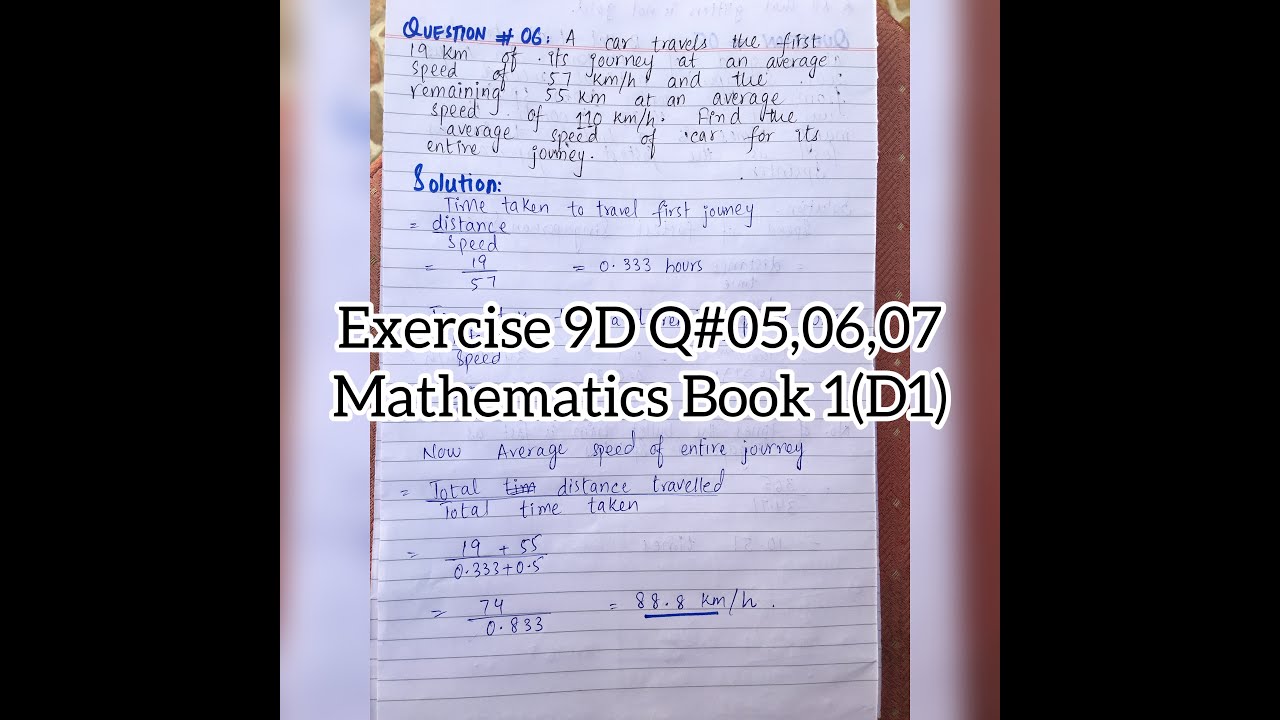 QUESTION # 06: A car travels the first
19 km of its journey at an average
speed of 57 km/h and the
remaining 55 km at an average
speed of 110 km/h. Find the
average speed of car for its
entire journey.
Solution:
Time taken to travel first journey
= distance
speed
= 19
57
= 0.333 hours
Exercise 9D Q#05,06,07
Speed
Mathematics Book 1(D1)
Now Average speed of entire journey
= Total tim distance travelled
Total time taken
= 19 + 55
0.333+0.5
= 74
0.833
= 88.8 km/h.